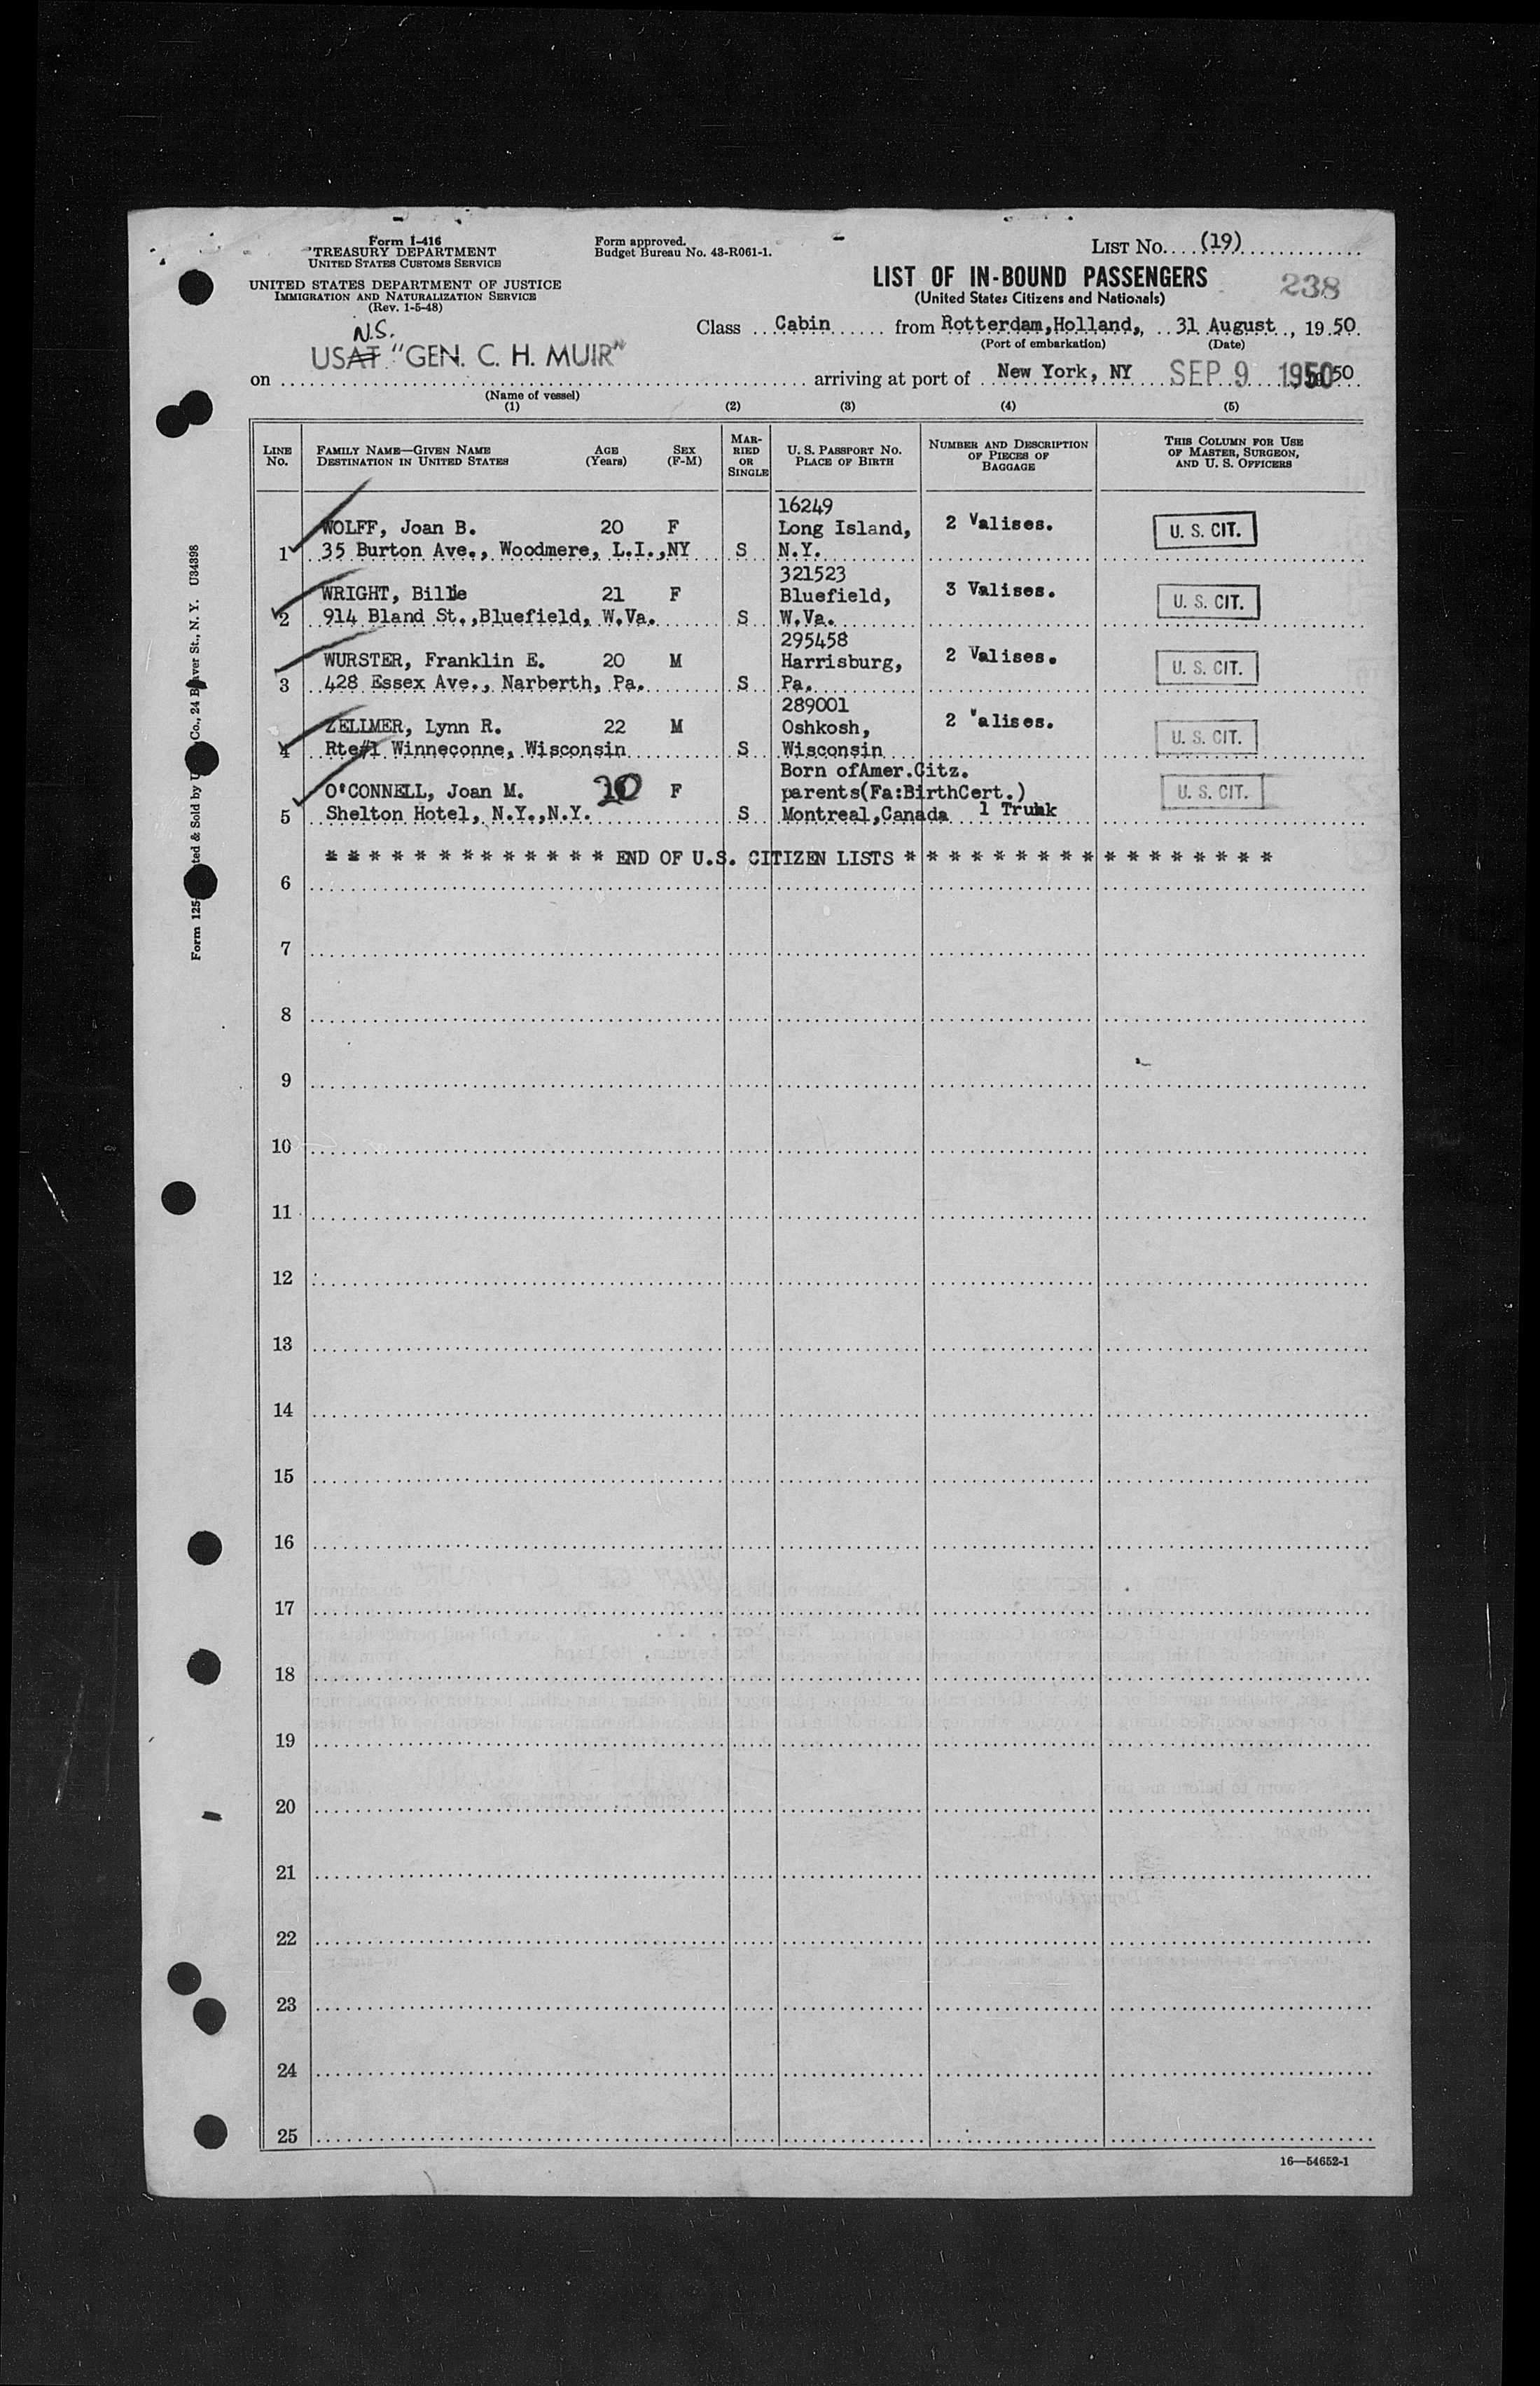 Form I-416
TREASURY DEPARTMENT
UNITED STATES CUSTOMS SERVICE
UNITED STATES DEPARTMENT OF JUSTICE
IMMIGRATION AND NATURALIZATION SERVICE
(Rev. 1-5-48)
Form approved.
Budget Bureau No. 43-R061-1.
LIST No. (19)
LIST OF IN-BOUND PASSENGERS
(United States Citizens and Nationals)
238
Class Cabin from Rotterdam,Holland, 31 August, 1950.
(Port of embarkation) (Date)
N.S.
USAT "GEN. C. H. MUIR"
on arriving at port of New York, NY SEP 9 1950 50
(Name of vessel)
(1) (2) (3) (4) (5)
LINE No.
FAMILY NAME—GIVEN NAME
DESTINATION IN UNITED STATES
AGE (Years)
SEX (F-M)
MARRIED OR SINGLE
U. S. PASSPORT NO.
PLACE OF BIRTH
NUMBER AND DESCRIPTION
OF PIECES OF
BAGGAGE
THIS COLUMN FOR USE
OF MASTER, SURGEON,
AND U. S. OFFICERS
16249
WOLFF, Joan B. 20 F Long Island, 2 Valises. U. S. CIT.
1 35 Burton Ave., Woodmere, L.I.,NY S N.Y.
321523
WRIGHT, Billie 21 F Bluefield, 3 Valises. U. S. CIT.
2 914 Bland St.,Bluefield, W.Va. S W.Va.
295458
WURSTER, Franklin E. 20 M Harrisburg, 2 Valises. U. S. CIT.
3 428 Essex Ave., Narberth, Pa. S Pa.
289001
ZELLMER, Lynn R. 22 M Oshkosh, 2 Valises. U. S. CIT.
4 Rte#1 Winneconne, Wisconsin S Wisconsin
Born ofAmer.Citz.
O'CONNELL, Joan M. 20 F parents(Fa:BirthCert.) U. S. CIT.
5 Shelton Hotel, N.Y.,N.Y. S Montreal,Canada 1 Trunk
* * * * * * * * * * * * * END OF U.S. CITIZEN LISTS * * * * * * * * * * * * * * * * *
6
7
8
9
10
11
12
13
14
15
16
17
18
19
20
21
22
23
24
25
16—54652-1
Co., 24 Beaver St., N. Y. U34398